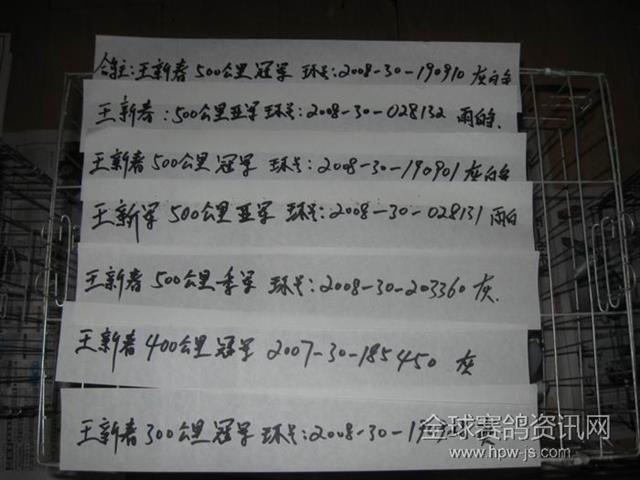 鸽主:王新春 500公里冠军 环号:2008-30-190910 灰白条
王新春:500公里亚军环号:2008-30-028132 雨白条.
王新春 500公里冠军 环号:2008-30-190901 灰白条
王新军 500公里亚军 环号:2008-30-028131 雨白
王新春 500公里季军 环号:2008-30-203360 灰.
王新春 400公里冠军 2007-30-185450 灰
王新春 300公里冠军 环号:2008-30-19
全球赛鸽资讯网
www.hpw-js.com